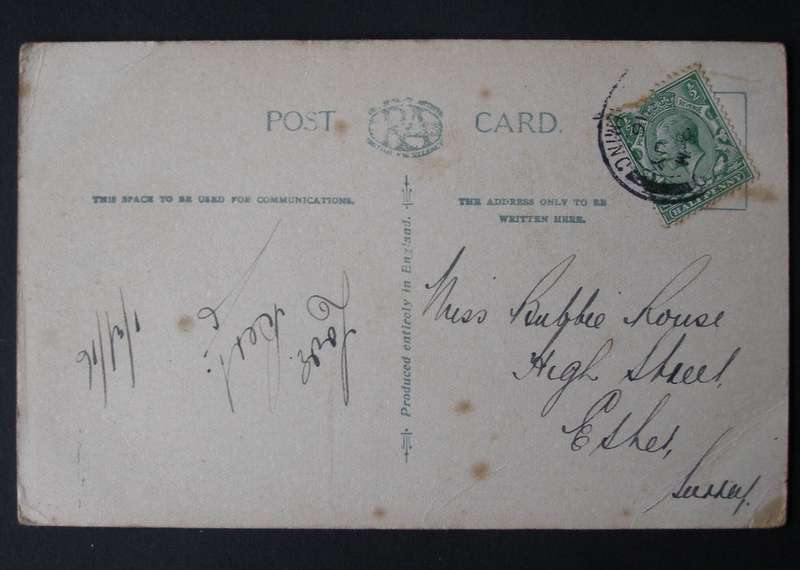 POST CARD.
THIS SPACE TO BE USED FOR COMMUNICATIONS.
THE ADDRESS ONLY TO BE
WRITTEN HERE.
Produced entirely in England.
HALFPENNY
Love
Miss Bubbie Rouse
High Street,
Esher,
Surrey.